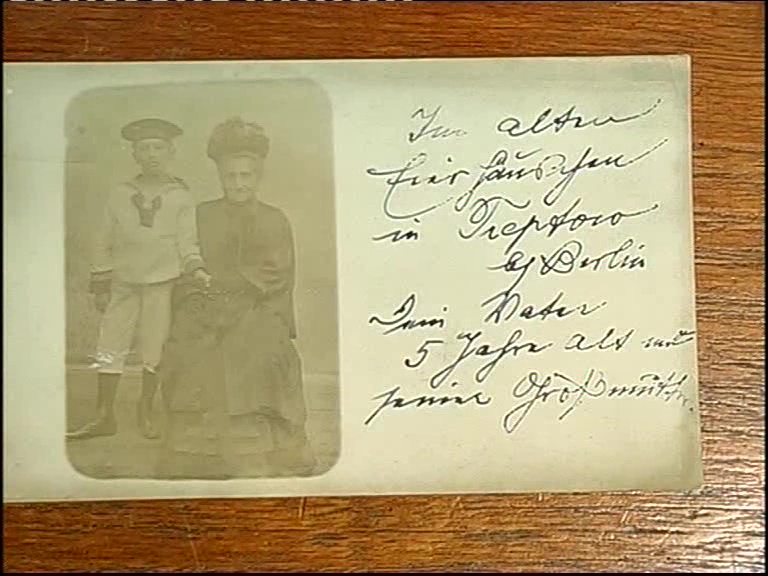 Im alten
Eierhäuschen
in Treptow
b/ Berlin
Dein Vater
5 Jahre alt mit
seiner Großmutter.